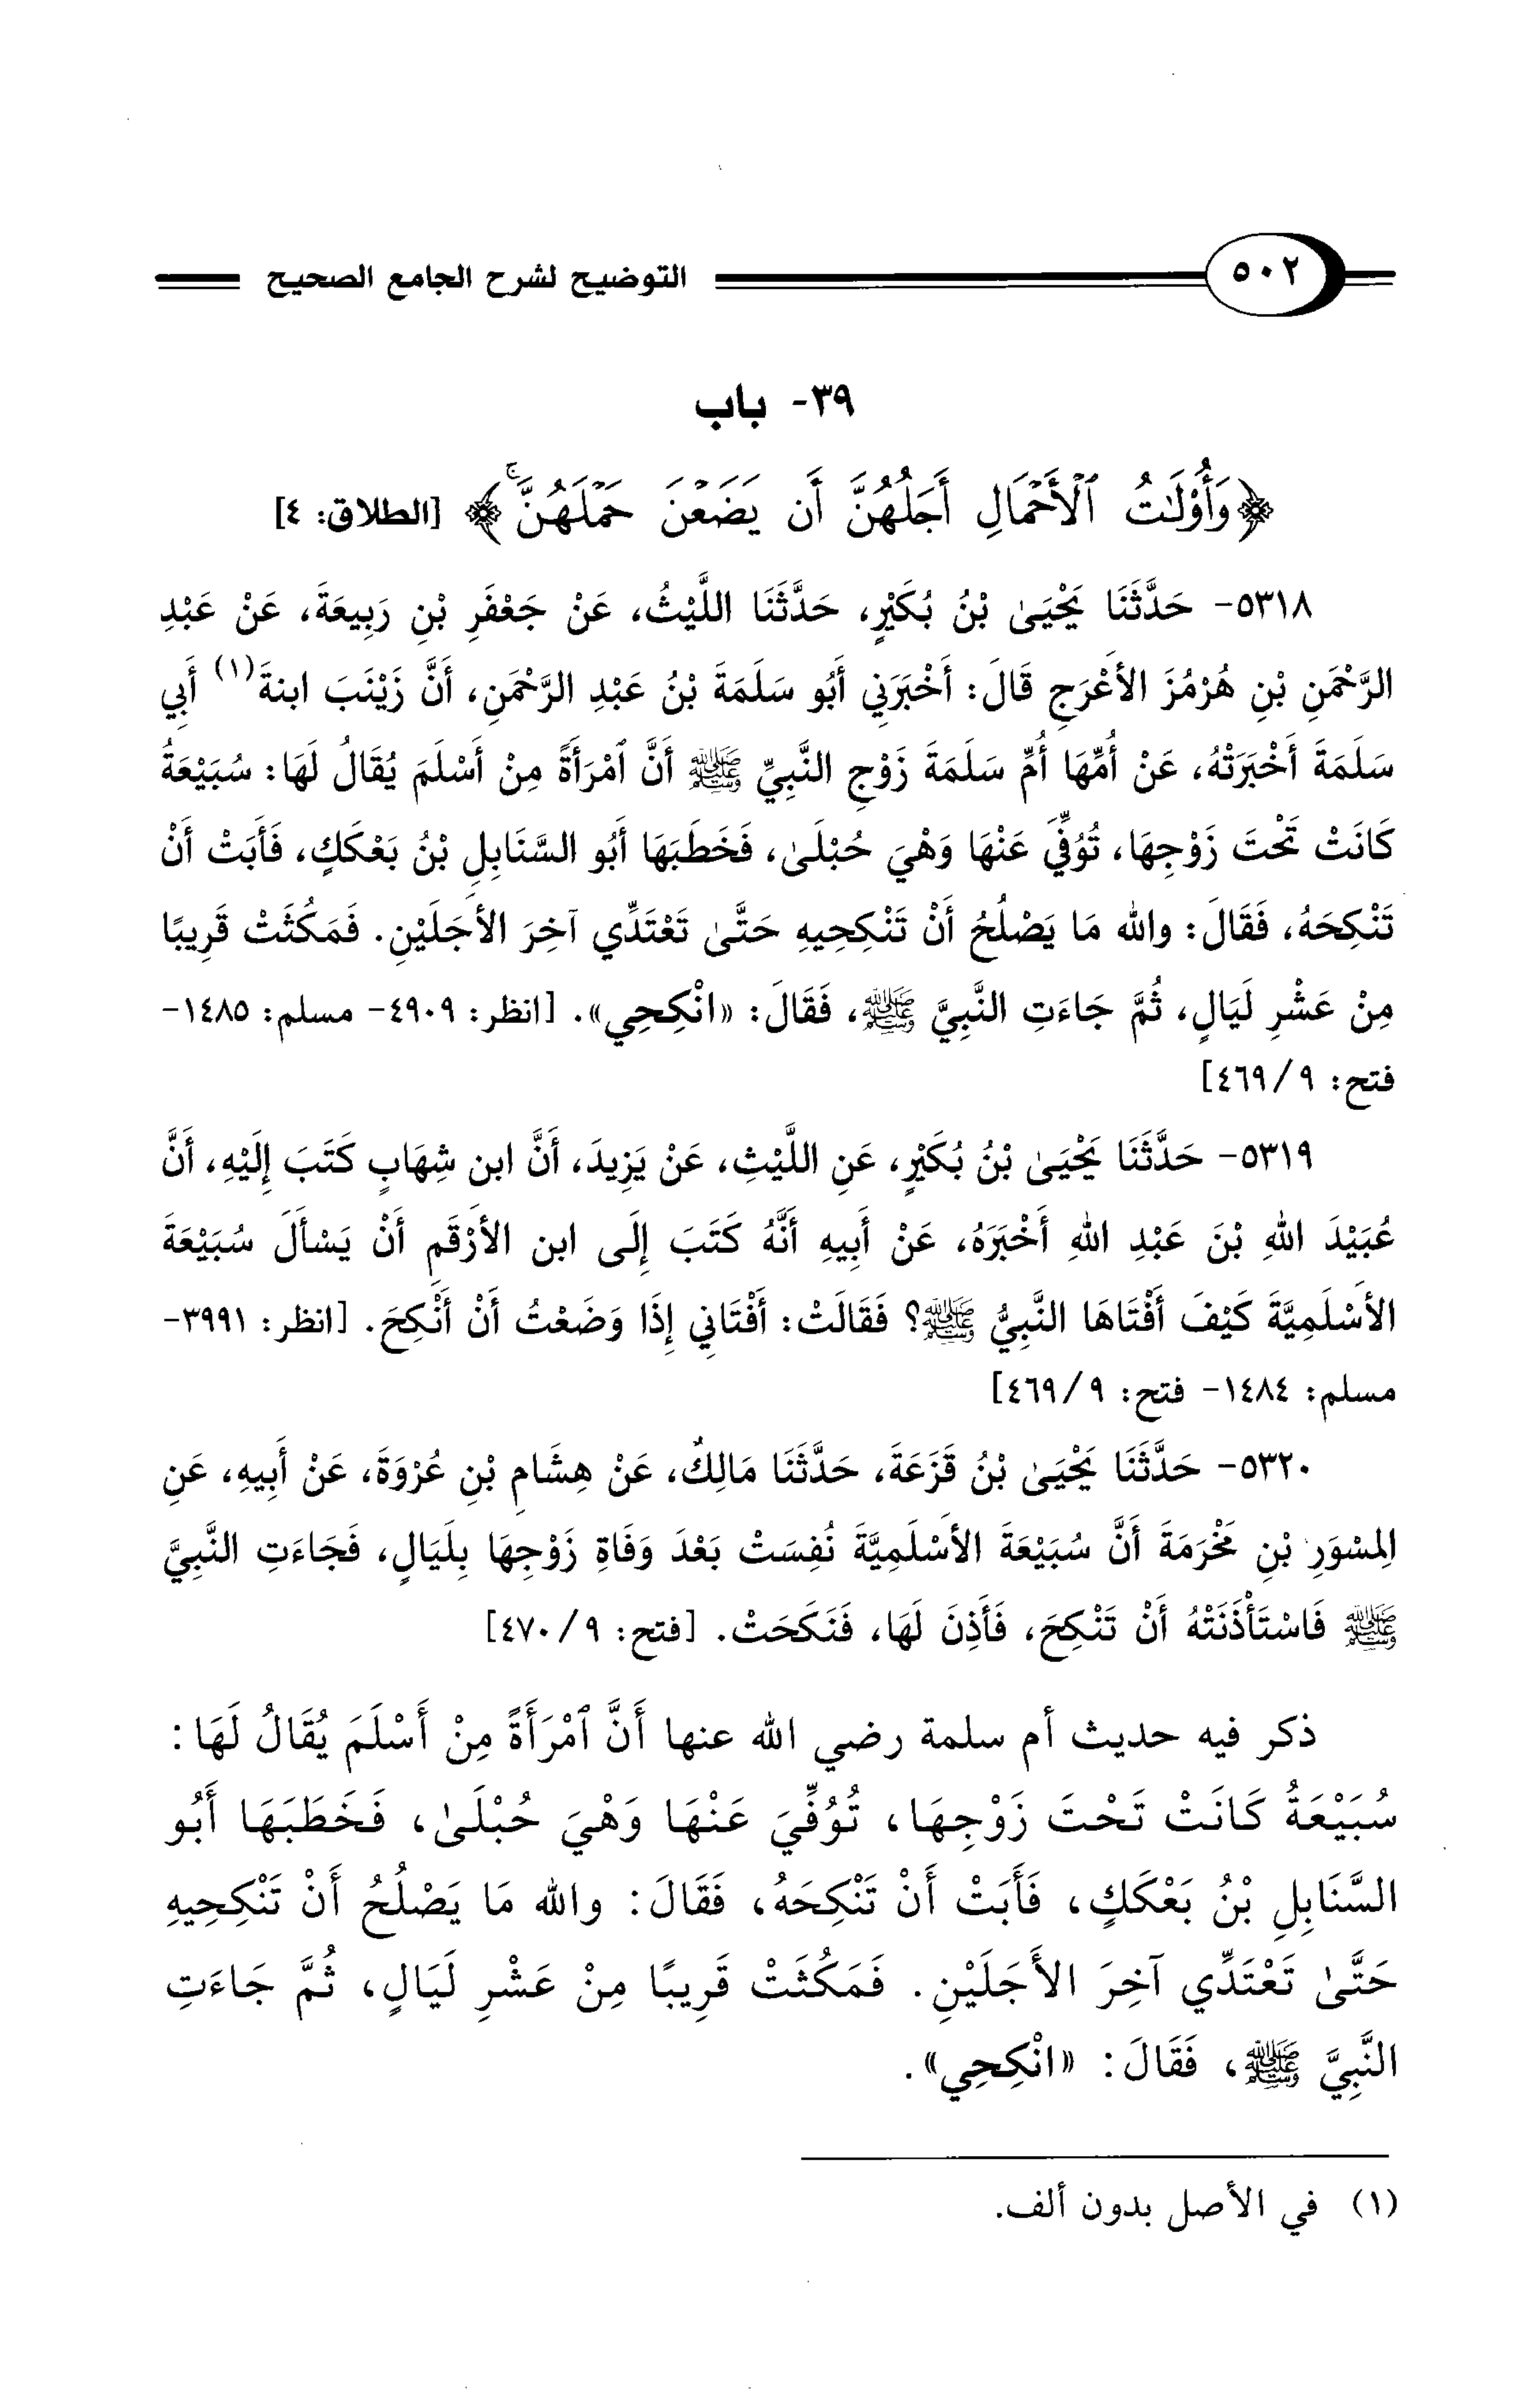 ٥٠٢ التوضيح لشرح الجامع الصحيح
٣٩- باب
﴿وَأُوْلَٰتُ ٱلْأَحْمَالِ أَجَلُهُنَّ أَن يَضَعْنَ حَمْلَهُنَّۚ﴾ [الطلاق: ٤]
٥٣١٨- حَدَّثَنَا يَحْيَىٰ بْنُ بُكَيْرٍ، حَدَّثَنَا اللَّيْثُ، عَنْ جَعْفَرِ بْنِ رَبِيعَةَ، عَنْ عَبْدِ
الرَّحْمَنِ بْنِ هُرْمُزَ الأَعْرَجِ قَالَ: أَخْبَرَنِي أَبُو سَلَمَةَ بْنُ عَبْدِ الرَّحْمَنِ، أَنَّ زَيْنَبَ ابنةَ(١) أَبِي
سَلَمَةَ أَخْبَرَتْهُ، عَنْ أُمِّهَا أُمِّ سَلَمَةَ زَوْجِ النَّبِيِّ ﷺ أَنَّ ٱمْرَأَةً مِنْ أَسْلَمَ يُقَالُ لَهَا: سُبَيْعَةُ
كَانَتْ تَحْتَ زَوْجِهَا، تُوُفِّيَ عَنْهَا وَهْيَ حُبْلَىٰ، فَخَطَبَهَا أَبُو السَّنَابِلِ بْنُ بَعْكَكٍ، فَأَبَتْ أَنْ
تَنْكِحَهُ، فَقَالَ: والله مَا يَصْلُحُ أَنْ تَنْكِحِيهِ حَتَّىٰ تَعْتَدِّي آخِرَ الأَجَلَيْنِ. فَمَكُثَتْ قَرِيبًا
مِنْ عَشْرِ لَيَالٍ، ثُمَّ جَاءَتِ النَّبِيَّ ﷺ، فَقَالَ: «انْكِحِي». [انظر: ٤٩٠٩- مسلم: ١٤٨٥-
فتح: ٩/ ٤٦٩]
٥٣١٩- حَدَّثَنَا يَحْيَىٰ بْنُ بُكَيْرٍ، عَنِ اللَّيْثِ، عَنْ يَزِيدَ، أَنَّ ابن شِهَابٍ كَتَبَ إِلَيْهِ، أَنَّ
عُبَيْدَ اللهِ بْنَ عَبْدِ اللهِ أَخْبَرَهُ، عَنْ أَبِيهِ أَنَّهُ كَتَبَ إِلَى ابن الأَرْقَمِ أَنْ يَسْأَلَ سُبَيْعَةَ
الأَسْلَمِيَّةَ كَيْفَ أَفْتَاهَا النَّبِيُّ ﷺ؟ فَقَالَتْ: أَفْتَانِي إِذَا وَضَعْتُ أَنْ أَنْكِحَ. [انظر: ٣٩٩١-
مسلم: ١٤٨٤- فتح: ٩/ ٤٦٩]
٥٣٢٠- حَدَّثَنَا يَحْيَىٰ بْنُ قَزَعَةَ، حَدَّثَنَا مَالِكٌ، عَنْ هِشَامِ بْنِ عُرْوَةَ، عَنْ أَبِيهِ، عَنِ
المِسْوَرِ بْنِ مَخْرَمَةَ أَنَّ سُبَيْعَةَ الأَسْلَمِيَّةَ نُفِسَتْ بَعْدَ وَفَاةِ زَوْجِهَا بِلَيَالٍ، فَجَاءَتِ النَّبِيَّ
ﷺ فَاسْتَأْذَنَتْهُ أَنْ تَنْكِحَ، فَأَذِنَ لَهَا، فَنَكَحَتْ. [فتح: ٩/ ٤٧٠]
ذكر فيه حديث أم سلمة رضي الله عنها أَنَّ ٱمْرَأَةً مِنْ أَسْلَمَ يُقَالُ لَهَا:
سُبَيْعَةُ كَانَتْ تَحْتَ زَوْجِهَا، تُوُفِّيَ عَنْهَا وَهْيَ حُبْلَىٰ، فَخَطَبَهَا أَبُو
السَّنَابِلِ بْنُ بَعْكَكٍ، فَأَبَتْ أَنْ تَنْكِحَهُ، فَقَالَ: والله مَا يَصْلُحُ أَنْ تَنْكِحِيهِ
حَتَّىٰ تَعْتَدِّي آخِرَ الأَجَلَيْنِ. فَمَكُثَتْ قَرِيبًا مِنْ عَشْرِ لَيَالٍ، ثُمَّ جَاءَتِ
النَّبِيَّ ﷺ، فَقَالَ: «انْكِحِي».
(١) في الأصل بدون ألف.